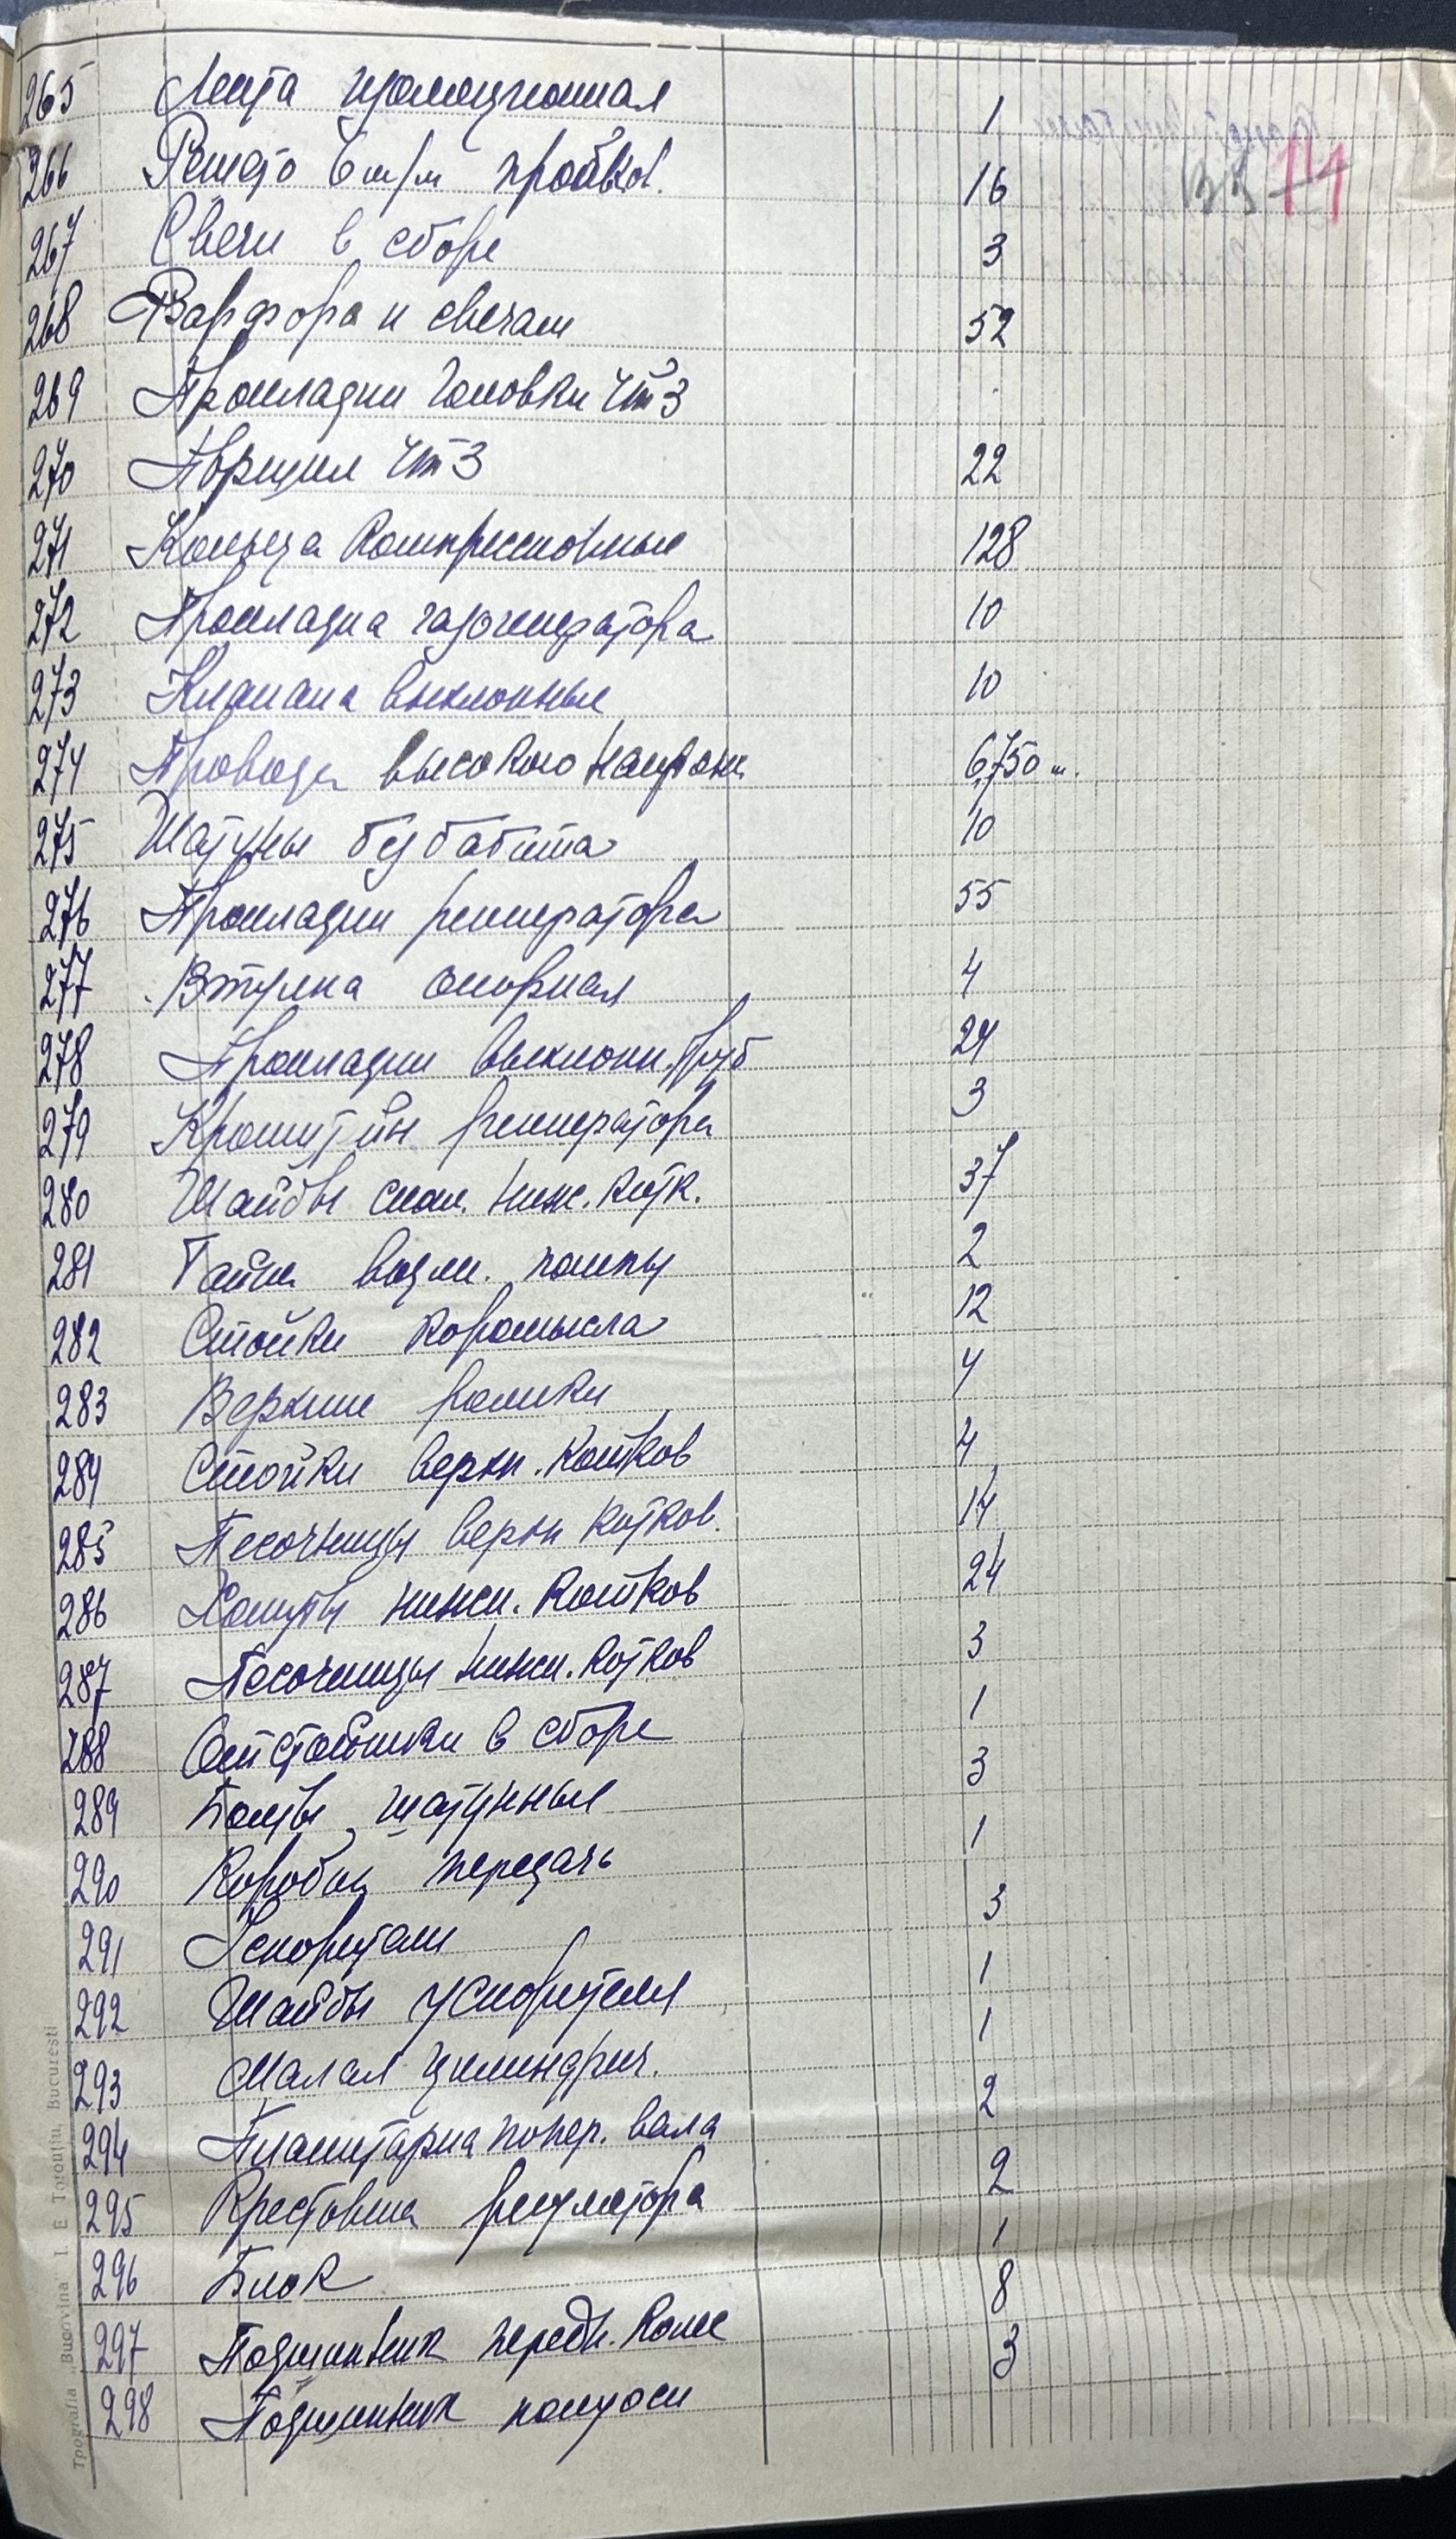 265 Лента изоляционная 1
266 Решето 6 м/м пробков. 16
267 Свечи в сборе 3
268 Фарфора к свечам 52
269 Прокладки головки ЧТЗ
270 Поршня ЧТЗ 22
271 Кольца компрессионные 128
272 Прокладка газогенератора 10
273 Клапана выхлопные 10
274 Провода высокого напряжен. 6,750 м.
275 Шатуны без бабита 10
276 Прокладки генератора 55
277 Втулка опорная 4
278 Прокладки выхлопн. труб 24
279 Кронштейн генератора 3
280 Шайбы стал. ниж. катк. 37
281 Гайка водян. помпы 2
282 Стойки коромысла 12
283 Верхние ролики 4
284 Стойки верхн. катков 4
285 Песочницы верхн катков. 14
286 Хомуты нижн. катков 24
287 Песочницы нижн. катков 3
288 Отстойники в сборе 1
289 Болты шатунные 3
290 Коробка передачь 1
291 Ускорители 3
292 Шайбы ускорителя 1
293 Малая цилиндрич. 1
294 Планитарка попер. вала 2
295 Крестовина регулятора 2
296 Блок 1
297 Подшипник передн. колес 8
298 Подшипник полуоси 3
33 14
Tipografia „Bucovina" I. E. Torouțiu, Bucuresti